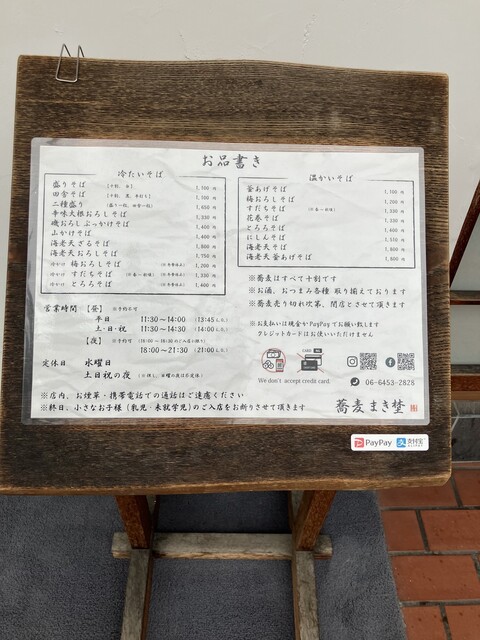 お品書き
冷たいそば
盛りそば 【十割、白】 1,100 円
田舎そば 【十割、黒、手打ち】 1,100 円
二種盛り (盛り一枚、田舎一枚) 1,650 円
辛味大根おろしそば 1,350 円
磯おろしぶっかけそば 1,400 円
山かけそば 1,400 円
海老天ざるそば 1,800 円
海老天おろしそば
冷かけ 梅おろしそば 1,200 円
冷かけ すだちそば 1,350 円
冷かけ とろろそば 1,400 円
温かいそば
釜あげそば 1,100 円
梅おろしそば 1,200 円
すだちそば
花巻そば
とろろそば
にしんそば
海老天そば 1,800 円
海老天釜あげそば 1,800 円
※蕎麦はすべて十割です
※お酒、おつまみ各種 取り揃えております
※蕎麦売り切れ次第、閉店とさせて頂きます
※お支払いは現金かPayPayでお願い致します
クレジットカードはお使いいただけません
We don't accept credit card.
06-6453-2828
営業時間 【昼】 ※予約不可
平日 11:30~14:00 (13:45 L.O.)
土・日・祝 11:30~14:30 (14:00 L.O.)
【夜】 ※予約可 (18:00~18:30のご入店に限り)
18:00~21:30 (21:00 L.O.)
定休日 水曜日
土日祝の夜
※店内、お煙草・携帯電話での通話はご遠慮ください
※終日、小さなお子様(乳児・未就学児)のご入店をお断りさせて頂きます
蕎麦まき埜
PayPay 支付宝